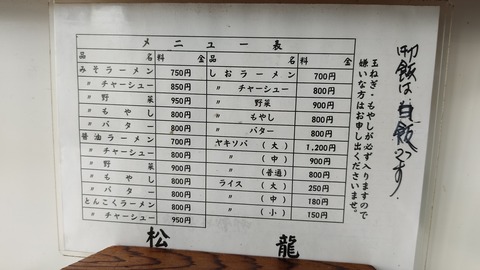 メニュー表
品名 料金
みそラーメン 750円
〃 チャーシュー 850円
〃 野菜 950円
〃 もやし 800円
〃 バター 800円
醤油ラーメン 700円
〃 チャーシュー 800円
〃 野菜 900円
〃 もやし 800円
〃 バター 800円
とんこくラーメン 800円
〃 チャーシュー 950円
品名 料金
しおラーメン 700円
〃 チャーシュー 800円
〃 野菜 900円
〃 もやし 800円
〃 バター 800円
ヤキソバ (大) 1,200円
〃 (中) 900円
〃 (普通) 800円
ライス (大) 250円
〃 (中) 180円
〃 (小) 150円
玉ねぎ・もやしが必ず入りますので
嫌いな方はお申し出くださいませ。
飯は
飯です.
松龍